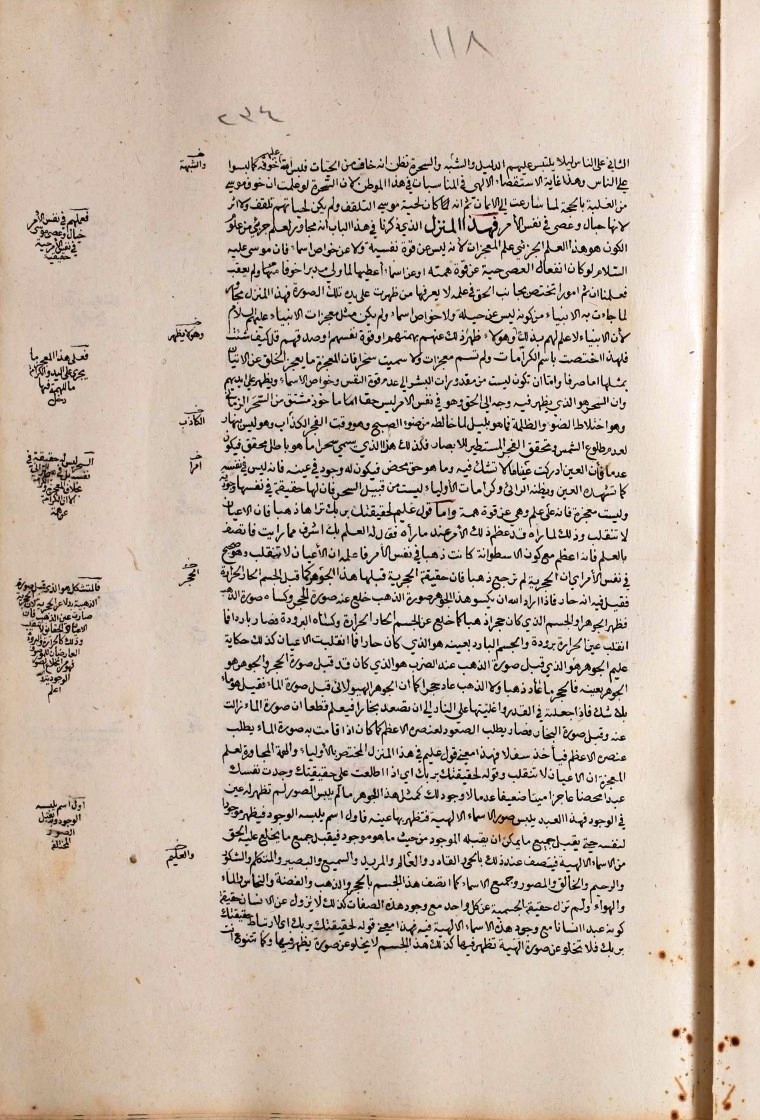 ١١٨
٢٣٤
الثاني على الناس لئلا يلتبس عليهم الدليل والشبه والسحرة تظن انه خاف من الحيات فلبس الله عليهم خوفه كما لبسوا
على الناس وهذا غاية الاستقصاء الالهي في المناسبات في هذا الموطن لان السحرة لو علمت ان خوف موسى
من الغلبة بالحجة لما سارعت إلى الايمان ثم انه كان لحية موسى التلقف ولم يكن لحياتهم تلقف ولا اثر
لانها حبال وعصي في نفس الامر فهذا المنزل الذي ذكرنا في هذا الباب انه مجاور لعلم جزئي من علوم
الكون هو هذا العلم الجزئي علم المعجزات لانه ليس عن قوة نفسية ولا عن خواص اسماء فان موسى عليه
السلام لو كان انفعال العصا حية عن قوة همته او عن اسماء أعطيها لما ولى مدبرا خوفا منها ولم يعقب
فعلمنا ان ثم امورا تختص بجانب الحق في علمه لا يعرفها من ظهرت على يده تلك الصورة فهذا المنزل مجاور
لما جاءت به الانبياء من كونه ليس عن حيلة ولا خواص اسماء ولم يكن مثل معجزات الانبياء عليهم السلام
لأن الانبياء لا علم لهم بذلك وهولاء ظهر ذلك عنهم بهمتهم او قوة نفسهم او صدقهم قل كيف شئت
فلهذا اختصت باسم الكرامات ولم تسم معجزات ولا سميت سحرا فان المعجزة ما يعجز الخلق عن الاتيان
بمثلها اما صرفا واما ان تكون ليست من مقدورات البشر لعدم قوة النفس وخواص الاسماء وتظهر على ايديهم
وان السحر هو الذي يظهر فيه وجه الى الحق وهو في نفس الامر ليس حقا اما ماخوذ مشتق من السحر الزماني
وهو اختلاط الضوء والظلمة فما هو بليل لما خالطه من ضوء الصبح وهو وقت الفجر الكذاب وهو ليس بنهار
لعدم طلوع الشمس وتحقق الفجر المستطير للابصار فكذلك هذا الذي يسمى سحرا ما هو باطل محقق فيكون
عدما فان العين ادركت شيئا ما لا تشك فيه وما هو حق محض فيكون له وجود في عينه فانه ليس في نفسه
كما تشهده العين ويظنه الرائي وكرامات الأولياء ليست من قبيل السحر فان لها حقيقة في نفسها وجودية
وليست معجزة فانه على علم وهي عن قوة همة واما قول عليم لحقيقتك بربك تراها ذهبا فان الاعيان
لا تنقلب وذلك لما راه قد عظم ذلك الامر عند ما راه فقال له العلم بك اشرف مما رايت فاتصف
بالعلم فانه اعظم مع كون الاسطوانة كانت ذهبا في نفس الامر فاعلمه ان الأعيان لا تنقلب وهو صحيح
في نفس الأمر اي ان الحجرية لم ترجع ذهبا فان حقيقة الحجرية قبلها هذا الجوهر كما قبل الجسم الحار الحرارة
فقيل فيه انه حار فاذا اراد الله ان يكسو هذا الجوهر صورة الذهب خلع عنه صورة الحجر وكساه صورة الذهب
فظهر الجوهر او الجسم الذي كان حجرا ذهبا كما خلع عن الجسم الحار الحرارة وكساه البرودة فصار باردا فما
انقلب عين الحرارة برودة والجسم البارد بعينه هو الذي كان حارا فما انقلبت الاعيان كذلك حكاية
عليم الجوهر هو الذي قبل صورة الذهب عند الضرب هو الذي كان قد قبل صورة الحجر والجوهر هو
الجوهر بعينه فالحجر ما عاد ذهبا ولا الذهب عاد حجرا كما ان الجوهر الهيولاني قبل صورة الماء فقيل هو ماء
بلا شك فاذا جعلته في القدر واغليتها على النار الى ان يصعد بخارا فتعلم قطعا ان صورة الماء زالت
عنه وقبل صورة البخار فصار يطلب الصعود لعنصره الاعظم كما كان اذا قامت به صورة الماء يطلب
عنصره الاعظم فيأخذ سفلا فهذا معنى قول عليم في هذا المنزل المختص بالأولياء والهمة المجاورة لعلم
المعجزة ان الاعيان لا تنقلب وقوله لحقيقتك بربك اي اذا اطلعت على حقيقتك وجدت نفسك
عبدا محضا عاجزا ميتا ضعيفا عدما لا وجود لك كمثل هذا الجوهر ما لم يلبس الصور لم تظهر له عين
في الوجود فهذا العبد يلبس صور الاسماء الالهية فتظهر بها عينه فاول اسم يلبسه الوجود فيظهر موجودا
لنفسه حتى يقبل جميع ما يمكن ان يقبله الموجود من حيث ما هو موجود فيقبل جميع ما يخلع عليه الحق
من الاسماء الالهية فيتصف عند ذلك بالحي والقادر والعالم والمريد والسميع والبصير والمتكلم والشكور
والرحيم والخالق والمصور وجميع الاسماء كما اتصف هذا الجسم بالحجر والذهب والفضة والنحاس والماء
والهواء ولم تزل حقيقة الجسمية عن كل واحد مع وجود هذه الصفات كذلك لا يزول عن الانسان حقيقة
كونه عبدا انسانا مع وجود هذه الاسماء الالهية فيه فهذا معنى قوله لحقيقتك بربك اي لارتباط حقيقتك
بربك فلا تخلو عن صورة الهية تظهر فيها كذلك هذا الجسم لا يخلو عن صورة يظهر فيها وكما تتنوع أنت
والشبهة
وهولا يظهر
الكاذب
امرا
الحجر
والعليم
فعلهم في نفس الأمر
حبال وعصي وموسى
في نفس الامر حية
حقيقية
فعلى هذا المعجز ما
يجري على اليد والكرامة
ما للهمة فيها
دخل
السحر ليس له حقيقة في
نفسه
فالمتشكل هو الذي قبل صورة
اعلم
اول اسم يلبسه
الوجود ويقبل
الصور
المختلفة